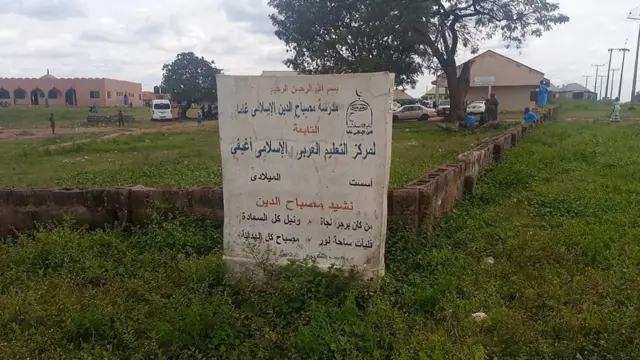 بسم الله الرحمن الرحيم
مدرسة مصباح الدين الإسلامى غاما
التابعة
لمركز التعليم العربى الإسلامى أغيغى
أسست الميلادى
نشيد مصباح الدين
من كان يرجوا نجاة * ونيل كل السعادة
فليأت ساحة نور * مصباح كل الهداية